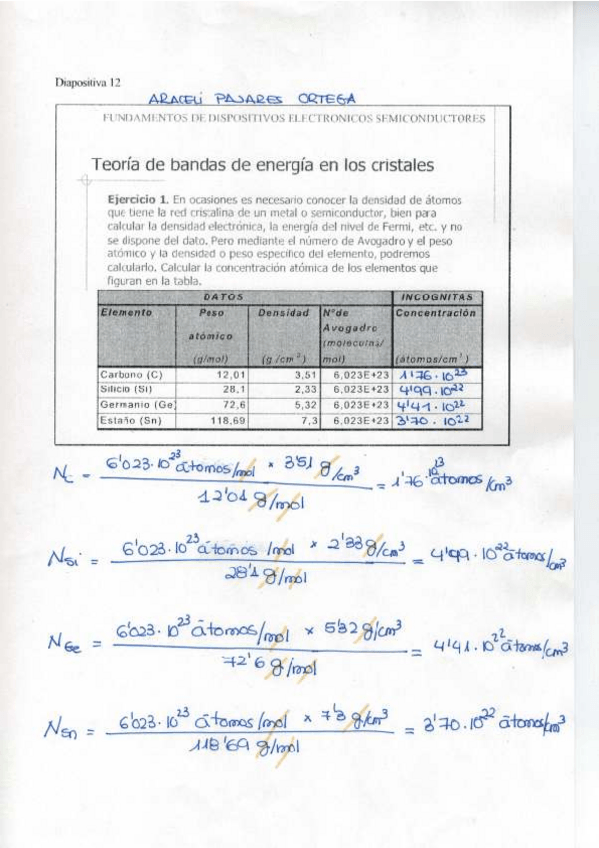 Diapositiva 12
ARACELI PAJARES ORTEGA
FUNDAMENTOS DE DISPOSITIVOS ELECTRONICOS SEMICONDUCTORES
Teoría de bandas de energía en los cristales
Ejercicio 1. En ocasiones es necesario conocer la densidad de átomos
que tiene la red cristalina de un metal o semiconductor, bien para
calcular la densidad electrónica, la energía del nivel de Fermi, etc. y no
se dispone del dato. Pero mediante el número de Avogadro y el peso
atómico y la densidad o peso especifico del elemento, podremos
calcularlo. Calcular la concentración atómica de los elementos que
figuran en la tabla.
DATOS INCOGNITAS
Elemento Peso Densidad Nºde Concentración
Avogadro
atómico
(moleculas/
(g/mol) (g/cm³) mol) (átomos/cm³)
Carbono (C) 12,01 3,51 6,023E+23 1'76·10²³
Silicio (Si) 28,1 2,33 6,023E+23 4'99·10²²
Germanio (Ge) 72,6 5,32 6,023E+23 4'41·10²²
Estaño (Sn) 118,69 7,3 6,023E+23 3'70·10²²
N_C = 6'023·10²³ átomos/mol × 3'51 g/cm³ / 12'01 g/mol = 1'76·10¹³ átomos/cm³
N_Si = 6'023·10²³ átomos/mol × 2'33 g/cm³ / 28'1 g/mol = 4'99·10²² átomos/cm³
N_Ge = 6'023·10²³ átomos/mol × 5'32 g/cm³ / 72'6 g/mol = 4'41·10²² átomos/cm³
N_Sn = 6'023·10²³ átomos/mol × 7'3 g/cm³ / 118'69 g/mol = 3'70·10²² átomos/cm³